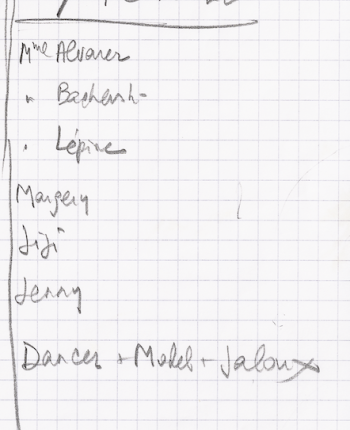 Mme Alvarez
" Bachersh-
" Lépine
Margery
Jiji
Jenny
Dances + Model + Jaloux